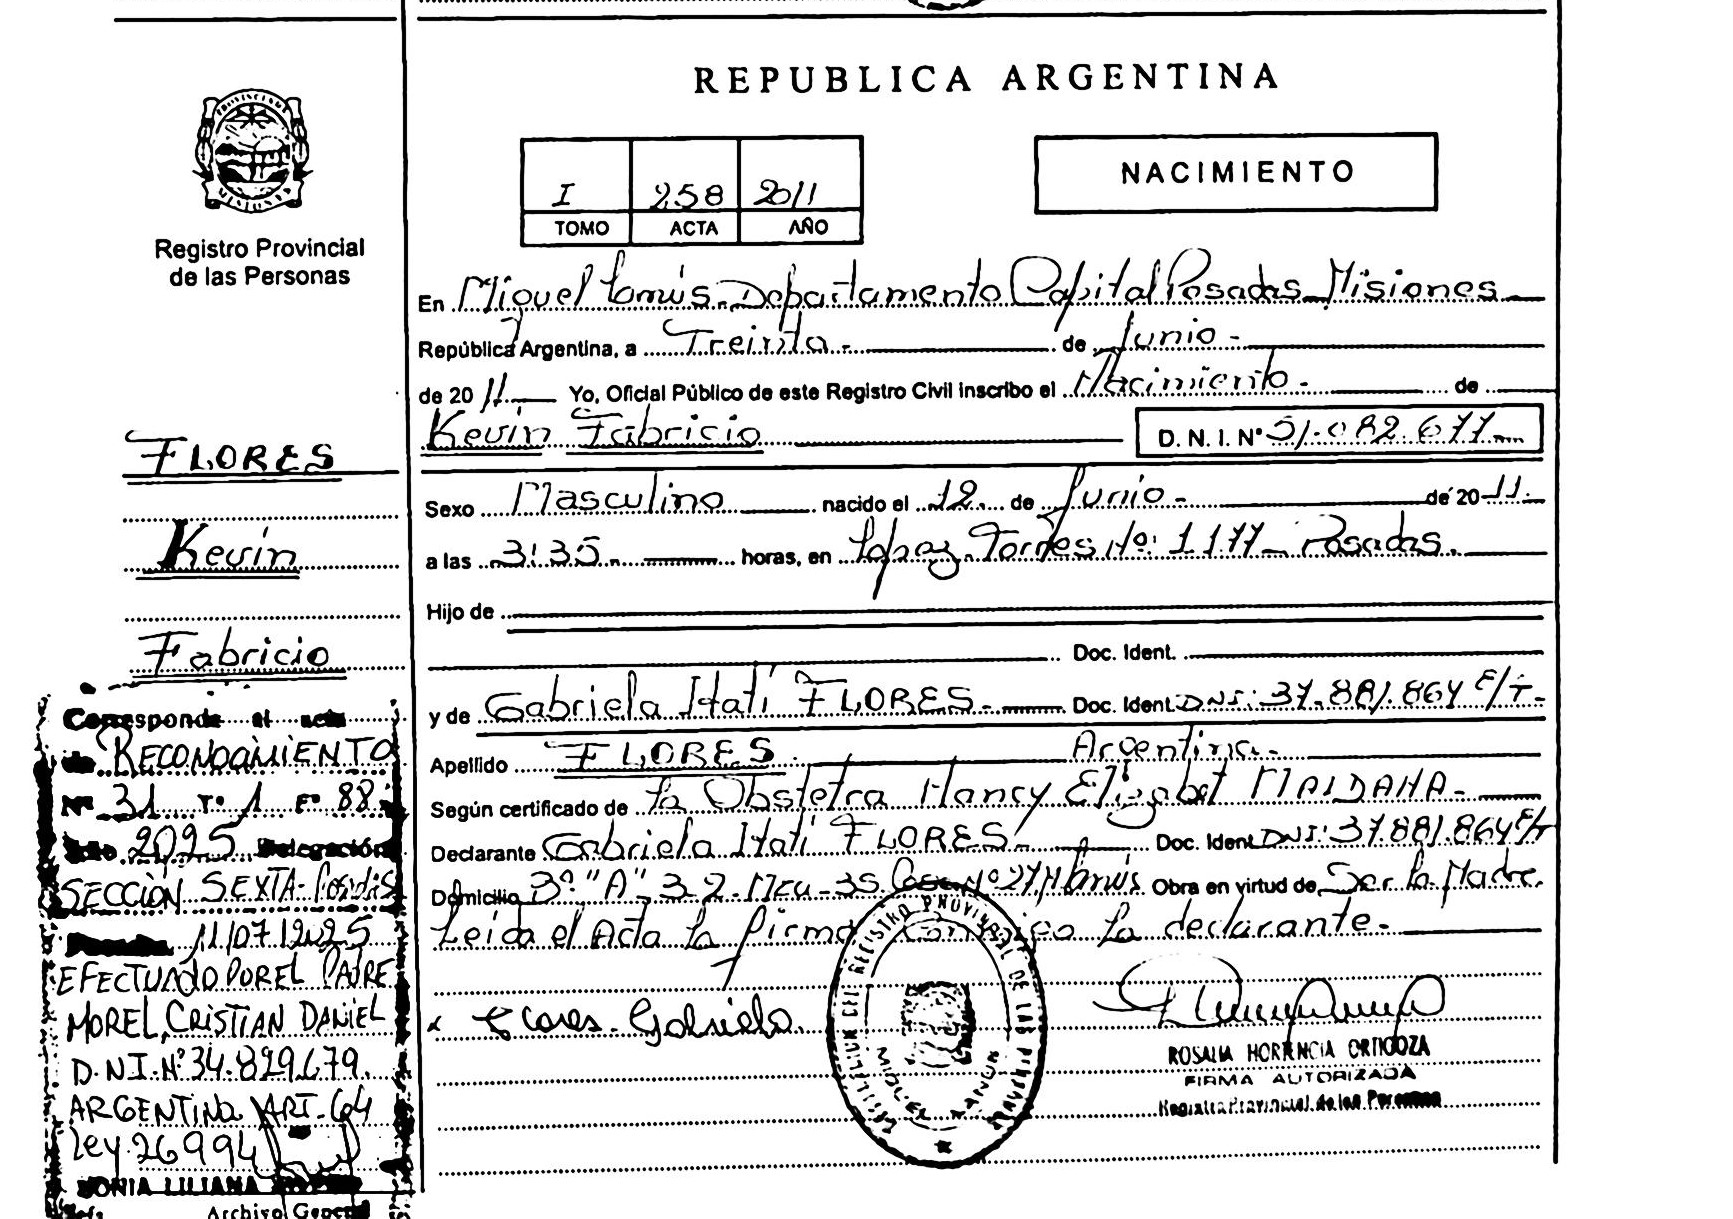 REPUBLICA ARGENTINA
I 258 2011
TOMO ACTA AÑO
NACIMIENTO
Registro Provincial
de las Personas
En Miguel Lanús. Departamento Capital Posadas Misiones
República Argentina, a Treinta - de Junio -
de 2011 Yo, Oficial Público de este Registro Civil inscribo el Nacimiento - de
Kevin Fabricio D. N. I. Nº 51.082.677
Sexo Masculino nacido el 12 de Junio - de 2011.
a las 3:35 horas, en Lopez Torres Nº: 1177 - Posadas.
Hijo de
Doc. Ident.
y de Gabriela Itatí FLORES - Doc. Ident. DNI: 37.881.864 E/T -
Apellido FLORES Argentina -
Según certificado de la Obstetra Nancy Elizabet MAIDANA -
Declarante Gabriela Itatí FLORES - Doc. Ident. DNI: 37.881.864 E/T
Domicilio 3º "A" 32 - 35 Casa Nº 27 Obra en virtud de Ser la Madre.
Leida el Acta la firma Conmigo la declarante -
Flores Gabriela
ROSALIA HORTENCIA ORTIGOZA
FIRMA AUTORIZADA
Registro Provincial de las Personas
REGISTRO PROVINCIAL DE LAS PERSONAS
MIGUEL LANUS
FLORES
Kevin
Fabricio
Corresponde al acta
de RECONOCIMIENTO
Nº 31 Tº 1 Fº 88
Año 2025 Delegación
SECCIÓN SEXTA - Posadas
Posadas 11/07/2025
EFECTUADO POR EL PADRE
MOREL, CRISTIAN DANIEL
D.N.I. Nº 34.829.679.
ARGENTINO ART. 64
Ley 26994
SONIA LILIANA
Jefa Archivo General